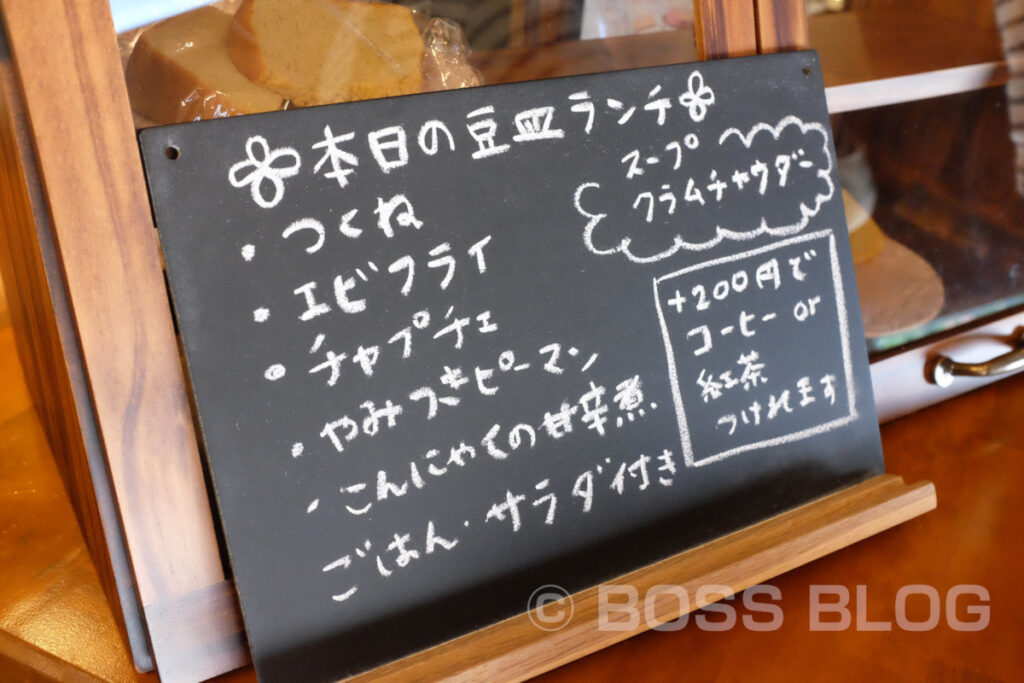 本日の豆皿ランチ
・つくね
・エビフライ
・チャプチェ
・やみつきピーマン
・こんにゃくの甘辛煮
ごはん・サラダ付き
スープ
クラムチャウダー
+200円で
コーヒー or
紅茶
つけれます
© BOSS BLOG